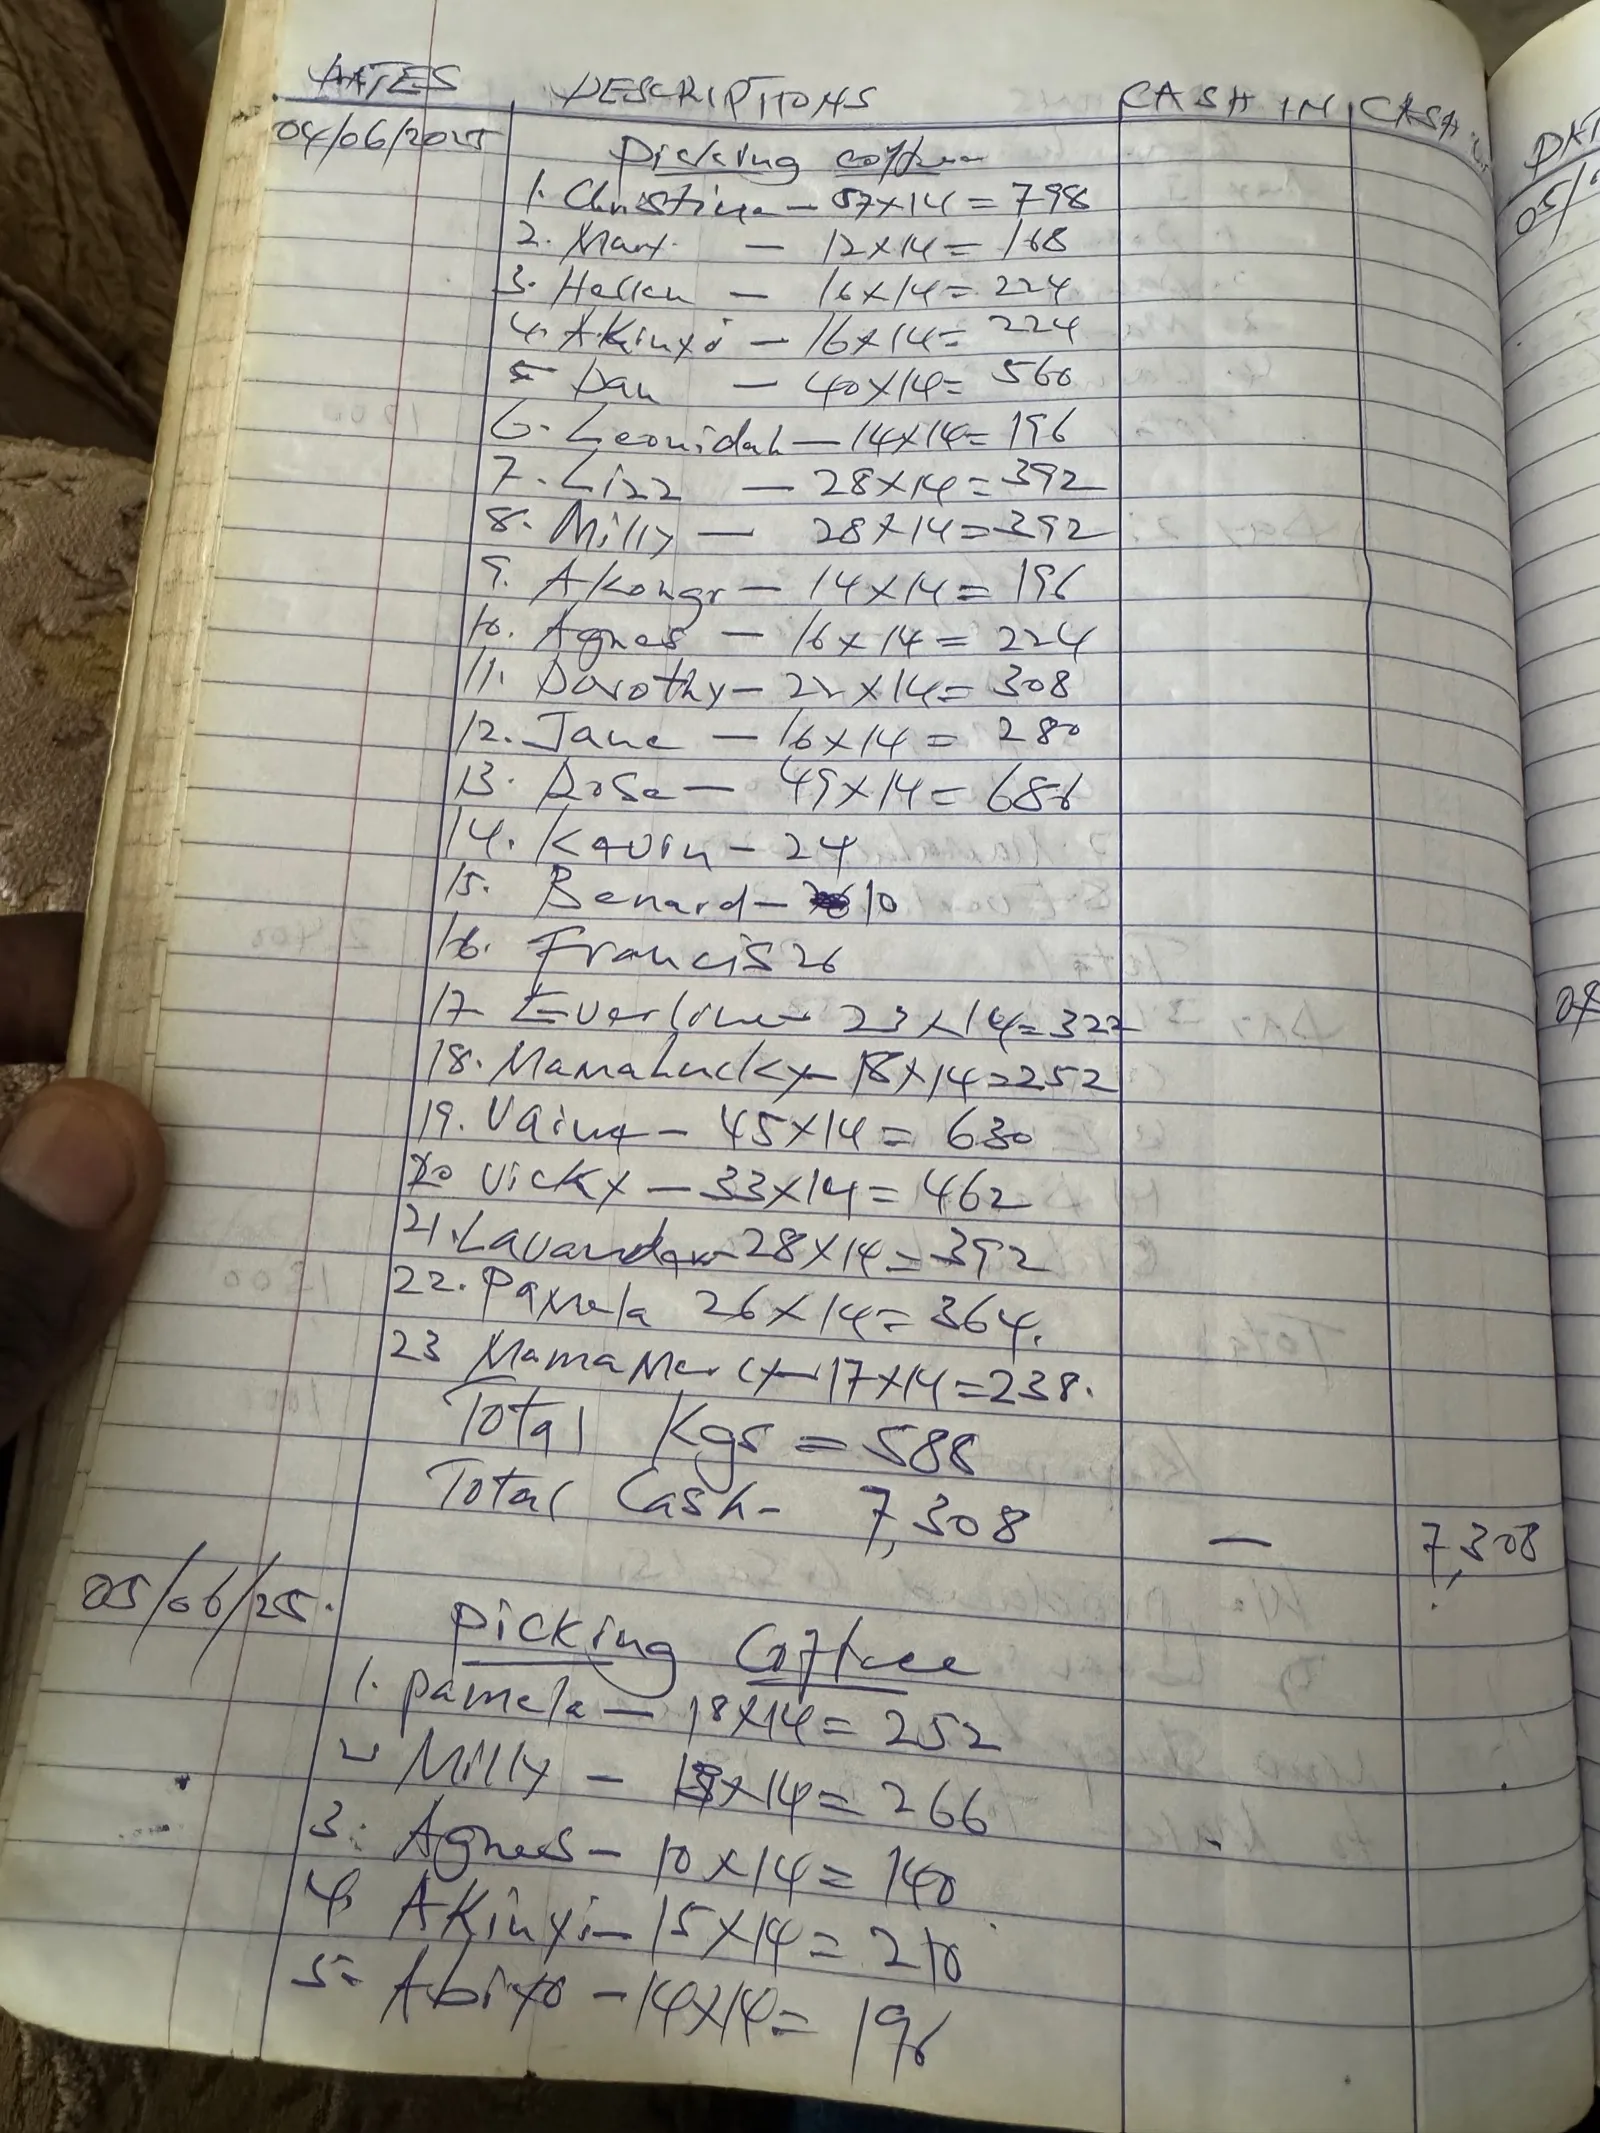 DATES DESCRIPTIONS CASH IN CASH
04/06/2025 Picking coffee
1. Christine - 57x14 = 798
2. Mary - 12x14 = 168
3. Hellen - 16x14 = 224
4. Akinyi - 16x14 = 224
5 Dan - 40x14 = 560
6. Leonidah - 14x14 = 196
7. Lizz - 28x14 = 392
8. Milly - 28x14 = 392
9. Akongr - 14x14 = 196
10. Agnes - 16x14 = 224
11. Dorothy - 22x14 = 308
12. Jane - 16x14 = 280
13. Rose - 49x14 = 686
14. Kevin - 24
15. Benard - 10
16. Francis 26
17 Everline - 23x14 = 322
18. Mama Lucky - 18x14 = 252
19. Vaina - 45x14 = 630
20 Vicky - 33x14 = 462
21. Lavander - 28x14 = 392
22. Pamela 26x14 = 364.
23 Mama Mercy - 17x14 = 238.
Total Kgs = 588
Total Cash - 7,308 — 7,308
05/06/25. Picking Coffee
1. Pamela - 18x14 = 252
2 Milly - x14 = 266
3. Agnes - 10x14 = 140
4. Akinyi - 15x14 = 210
5 - Abiyo - 14x14 = 196
05/